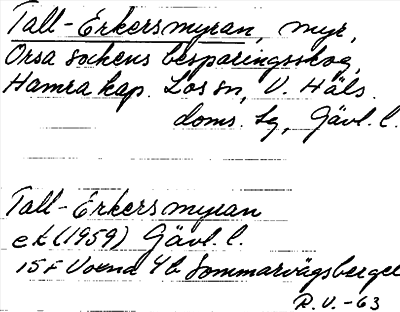 Tall-Erkersmyran, myr,
Orsa sockens besparingsskog,
Hamra kap. Los sn, V. Häls.
doms. sg, Gävl. l.
Tall-Erkersmyran
ek (1959) Gävl. l.
15F Voxna 4b Sommarvägsberget
R.V.-63